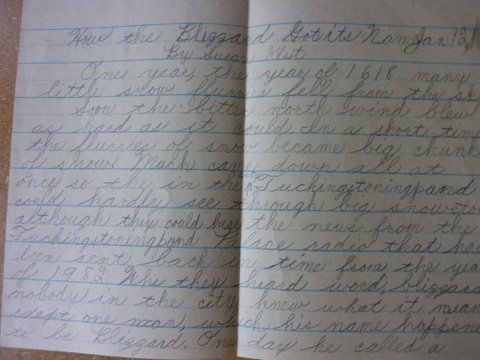 How the Blizzard Got its Name Jan 12,
By Susan
One year, the year of 1618 many
little snow flurries fell from the
Soon the bitter north wind blew
as hard as it could. In a short time
the flurries of snow became big chunk
of snow. Much came down all at
once so the in the Tuckingstoningpand
could hardley see through big snow
although they could hear the news from the
Tuckingstoningpand Palace radio that ha
been sent back in time from the yea
of 1982. Whe they heard word, blizzard
nobody in the city knew what it mean
exept one man, which his name happene
to be Blizzard. One day he called a